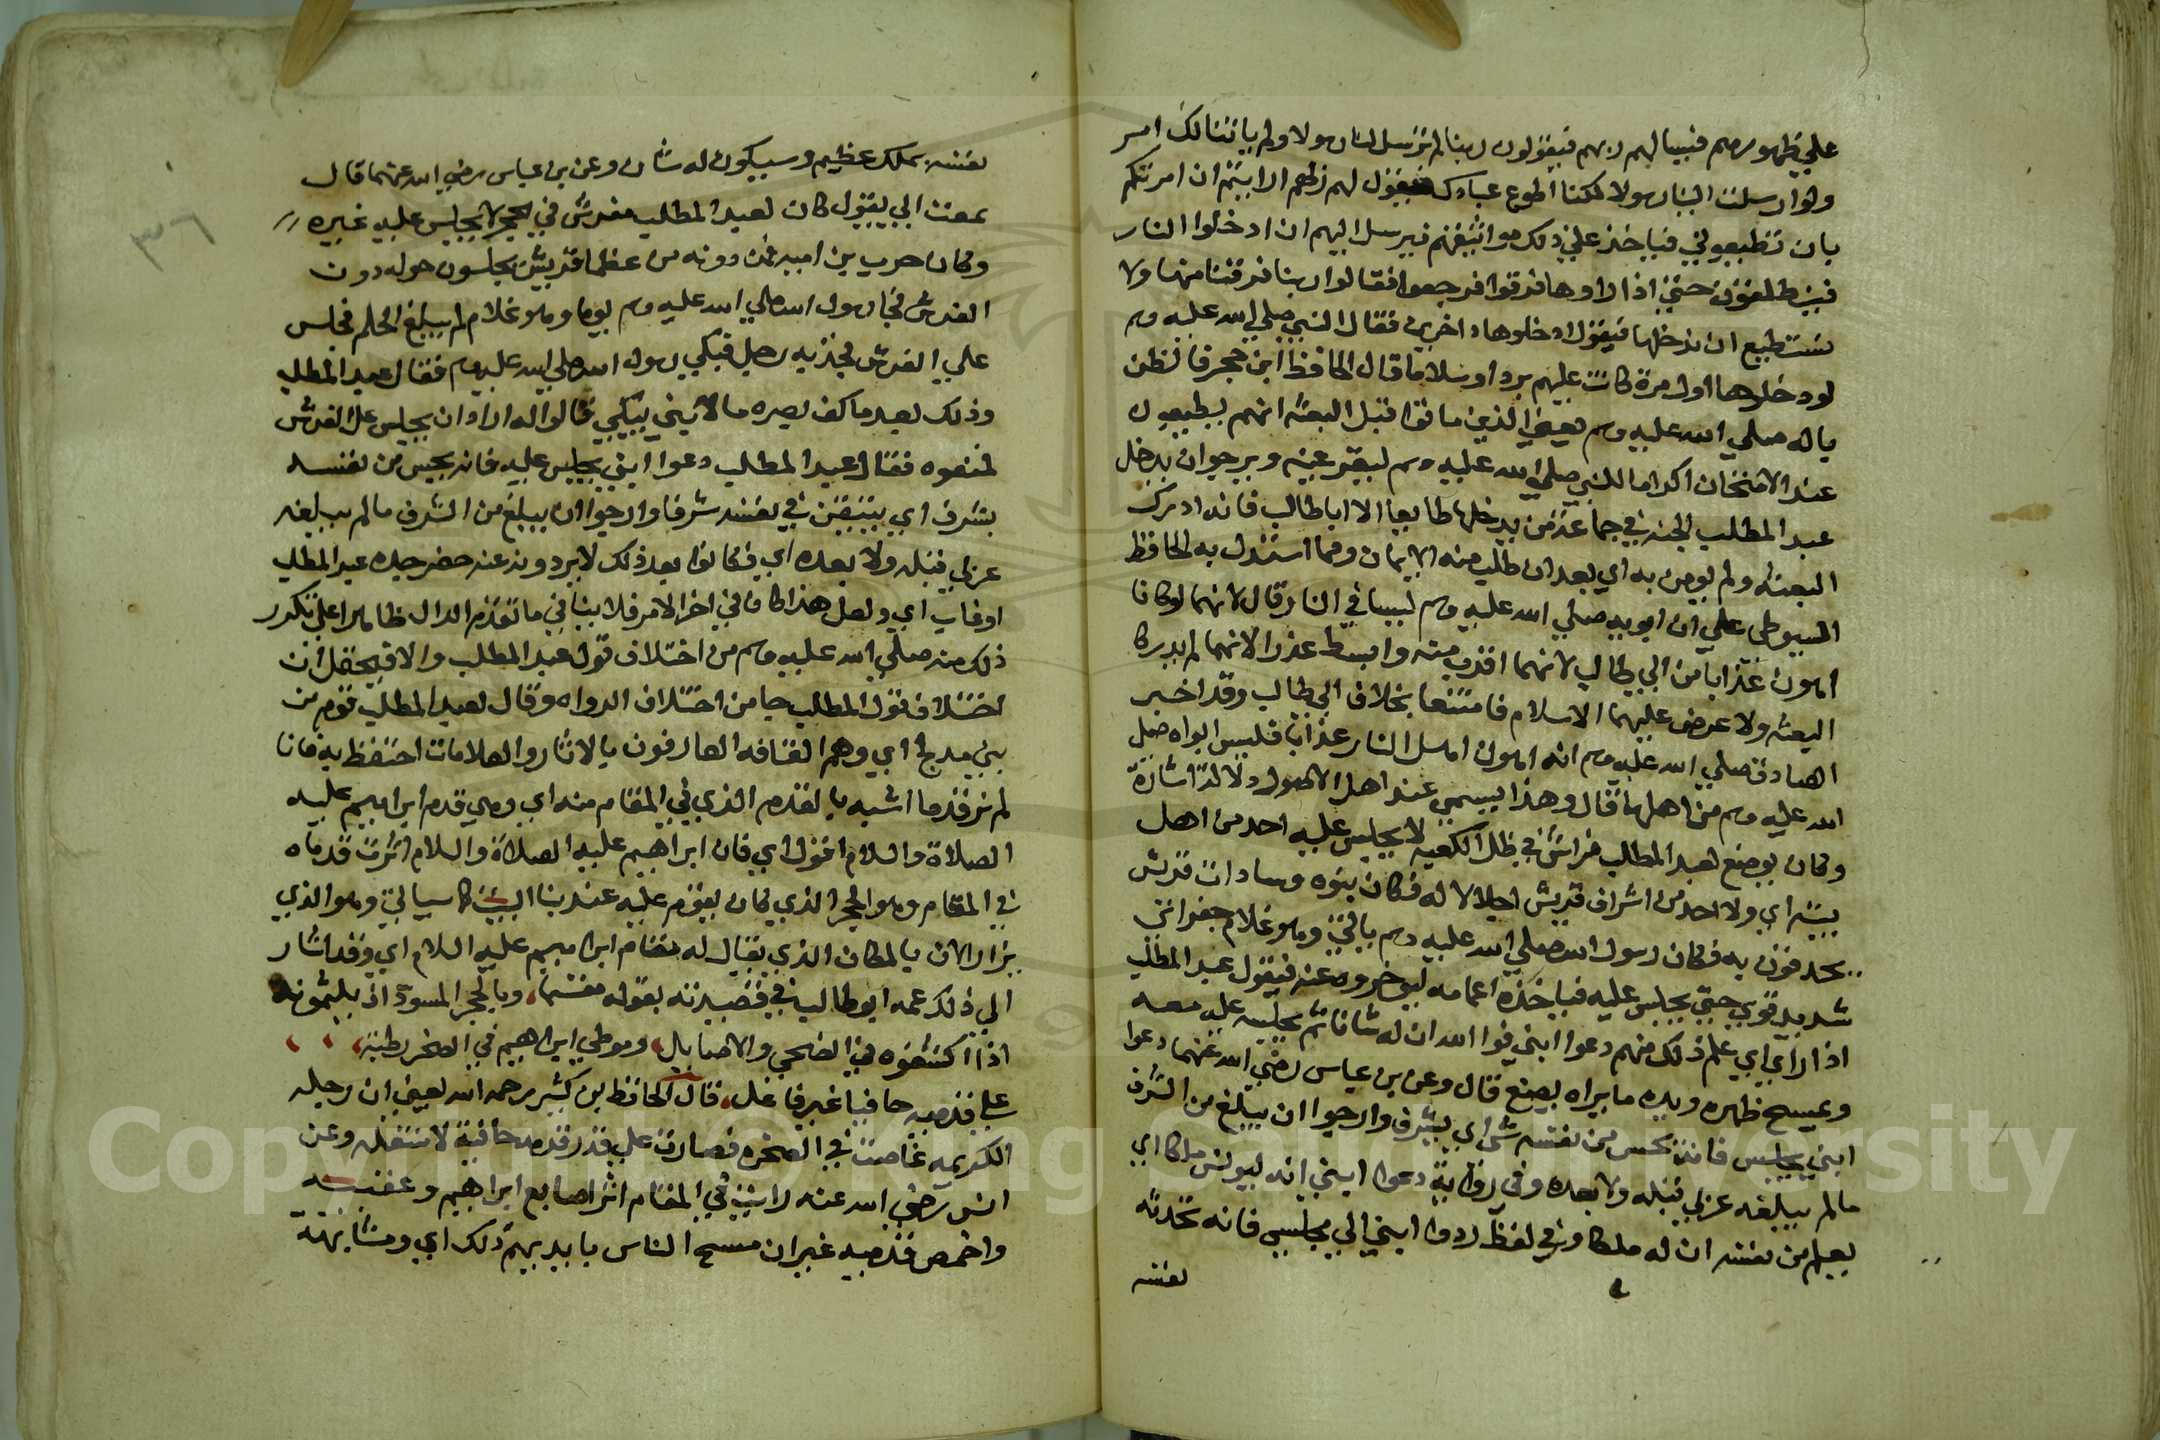 علي ظهورهم فيسالهم ربهم فيقولون ربنا لم ترسل لنا رسولا ولم ياتنا لك امر
ولو ارسلت الينا رسولا لكنا اطوع عبادك فيقول لهم ربهم ارايتم ان امرتكم
بان تطيعوني فياخذ علي ذلك مواثيقهم فيرسل اليهم ان ادخلوا النار
فينطلقون حتي اذا راوها فرقوا فرجعوا فقالوا ربنا فرقنا منها ولا
نستطيع ان ندخلها فيقول ادخلوها داخرين فقال النبي صلي الله عليه وسلم
لو دخلوها اول مرة كانت عليهم بردا وسلاما قال الحافظ ابن حجر فالظن
باله صلي الله عليه وسلم يعني الذين ماتوا قبل البعثة انهم يطيعون
عند الامتحان اكراما للنبي صلي الله عليه وسلم ليقر عينه ويرجوا ان يدخل
عبد المطلب الجنه في جماعة من يدخلها طايعا الا ابا طالب فانه ادرك
البعثة ولم يومن به اي بعد ان طلب منه الايمان ومما استدل به الحافظ
السيوطي علي ان ابويه صلي الله عليه وسلم ليسا في النار قال لانهما لو كانا
اهون عذابا من ابي طالب لانهما اقرب منه وابسط عذرا لانهما لم يدركا
البعثه ولا عرض عليهما الاسلام فامتنعا بخلاف ابي طالب وقد اخبر
الصادق صلي الله عليه وسلم انه اهون اهل النار عذابا فليس ابواه صلي
الله عليه وسلم من اهلها قال وهذا يسمي عند اهل الاصول دلالة اشارة
وكان يوضع لعبد المطلب فراش في ظل الكعبه لا يجلس عليه احد من اهل
بيته اي ولا احد من اشراف قريش اجلالا له فكان بنوه وسادات قريش
يحدقون به فكان رسول الله صلي الله عليه وسلم ياتي وهو غلام جفر اي
شديد قوي حتي يجلس عليه فياخذه اعمامه ليوخروه عنه فيقول عبد المطلب
اذا راي اي علم ذلك منهم دعوا ابني فوا الله ان له شانا ثم يجلسه عليه معه
ويمسح ظهره ويسره ما يراه يصنع قال وعن بن عباس رضي الله عنهما دعوا
ابني يجلس فانه يحس من نفسه شي اي يشرف وارجوا ان يبلغ من الشرف
مالم يبلغه عربي قبله ولا بعده وفي رواية دعوا ابني انه ليونس ملكا اي
يعلم من نفسه ان له ملكا وفي لفظ ردوا ابني الي مجلسي فانه تحدثه
نفسه
نفسه بملك عظيم وسيكون له شان وعن بن عباس رضي الله عنهما قال
سمعت ابي يقول كان لعبد المطلب مفرش في الحجر لا يجلس عليه غيره
وكان حرب بن امية فمن دونه من عظما قريش يجلسون حوله دون
المفرش فجا رسول الله صلي الله عليه وسلم يوما وهو غلام لم يبلغ الحلم فجلس
علي المفرش فجذبه رجل فبكي رسول الله صلي الله عليه وسلم فقال عبد المطلب
وذلك بعد ما كف بصره ما لابني يبكي قالوا له اراد ان يجلس علي المفرش
فمنعوه فقال عبد المطلب دعوا ابني يجلس عليه فانه يحس من نفسه
بشرف اي يتيقن في نفسه شرفا وارجوا ان يبلغ من الشرف مالم يبلغه
عربي قبله ولا بعده اي فكانوا بعد ذلك لا يردونه عنه حضر جده عبد المطلب
او غاب اي ولعل هذا كان في اخر الامر فلا ينافي ما تقدم الدال ظاهرا علي تكرر
ذلك منه صلي الله عليه وسلم من اختلاف قول عبد المطلب والا فيحتمل ان
اختلاف قول المطلب جا من اختلاف الرواه وقال لعبد المطلب قوم من
بني مدلج اي وهم القافه العارفون بالاثار والعلامات احتفظ به فانا
لم نر قدما اشبه بالقدم الذي في المقام منه اي وهي قدم ابراهيم عليه
الصلاة والسلام اقول اي فان ابراهيم عليه الصلاة والسلام اثرت قدماه
في المقام وهو الحجر الذي كان يقوم عليه عند بنا البيت كما سياتي وهو الذي
يزار الان بالمكان الذي يقال له مقام ابراهيم عليه السلام اي وقد اشار
الي ذلك عمه ابو طالب في قصيدته بقوله مقسما، وبالحجر المسود اذ يلثمونه
اذا اكتنفوه في الضحي والاصايل، وموطي ابراهيم في الصخر رطبة،
علي قدميه حافيا غير ناعل، قال الحافظ بن كثير رحمه الله يعني ان رجله
الكريمه غاصت في الصخره فصارت علي قدر قدمه حافية لا منتعله وعن
انس رضي الله عنه رايت في المقام اثر اصابع ابراهيم وعقبيه
واخمص قدميه غير ان مسح الناس بايديهم ذلك اي ومشابهة
٣٦
Copyright © King Saud University